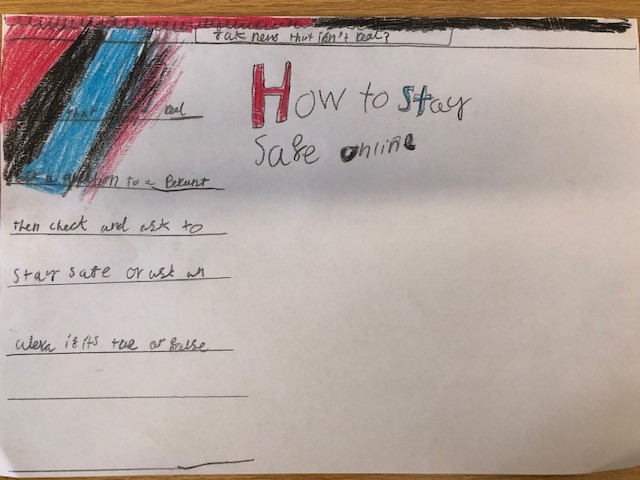 fake news that isn't real?
How to Stay
Safe online
that real
question to a Perunt
then check and ask to
Stay safe or ask an
alexa if its true or false